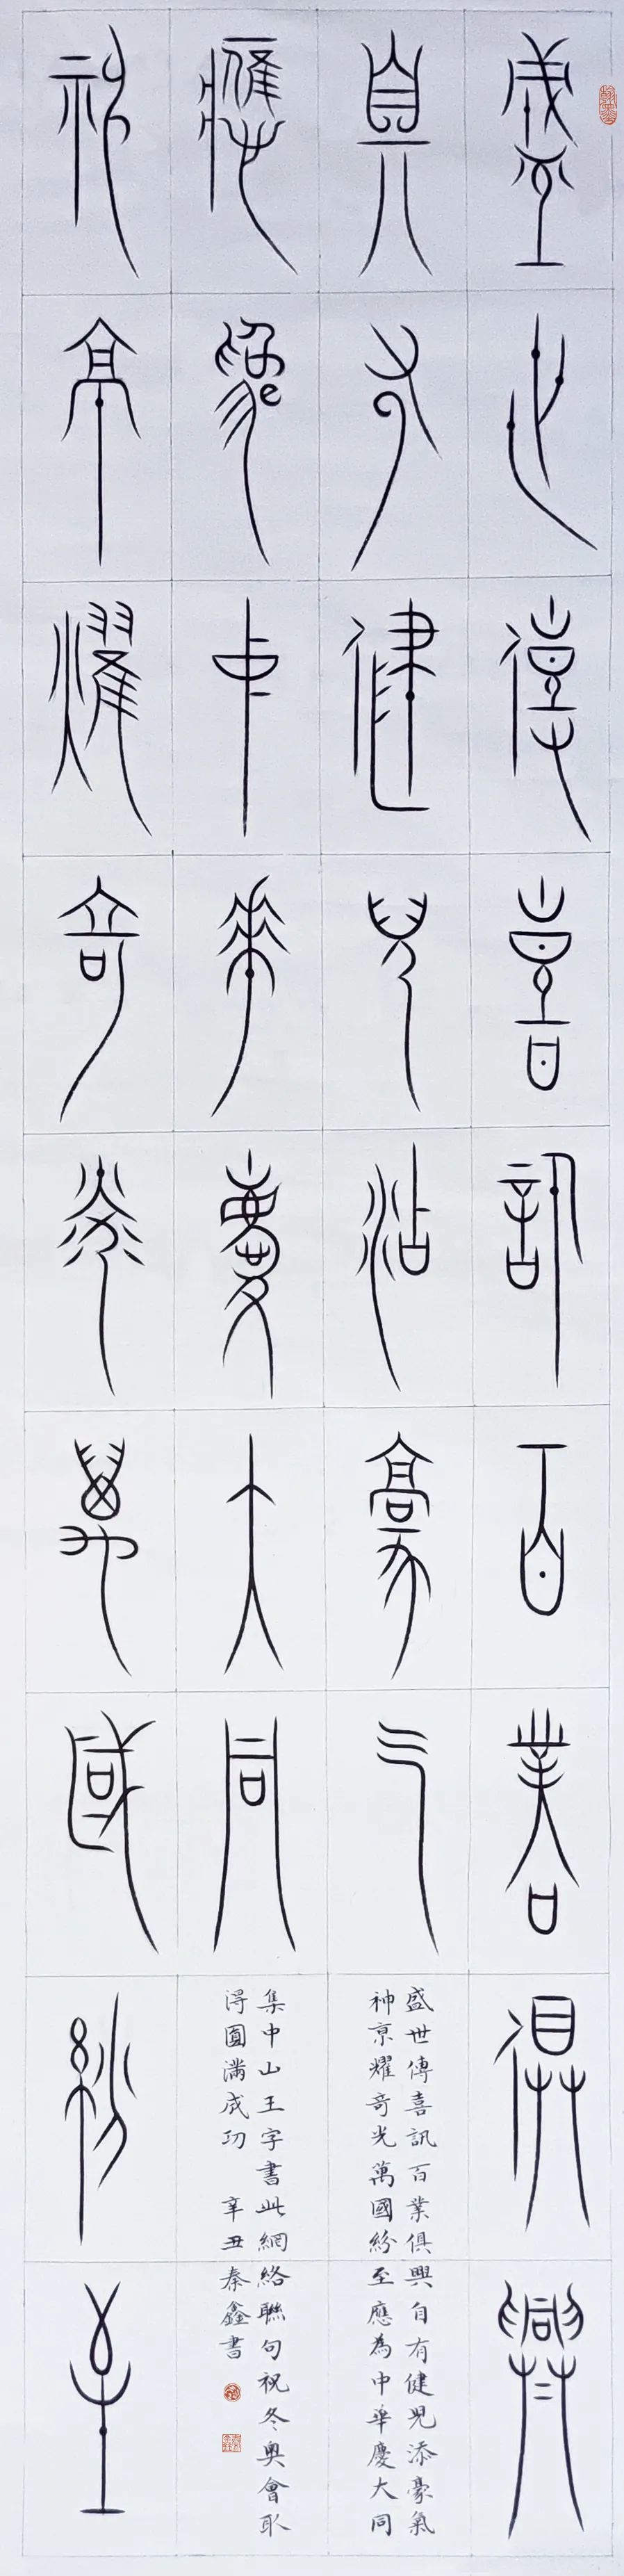 盛世傳喜訊百業俱興
自有健兒添豪氣
神京耀奇光萬國紛至
應為中華慶大同
盛世傳喜訊百業俱興自有健兒添豪氣
神亰耀奇光萬國紛至應為中華慶大同
集中山王字書此網絡聯句祝冬奧會取
得圓滿成功 辛丑秦鑫書